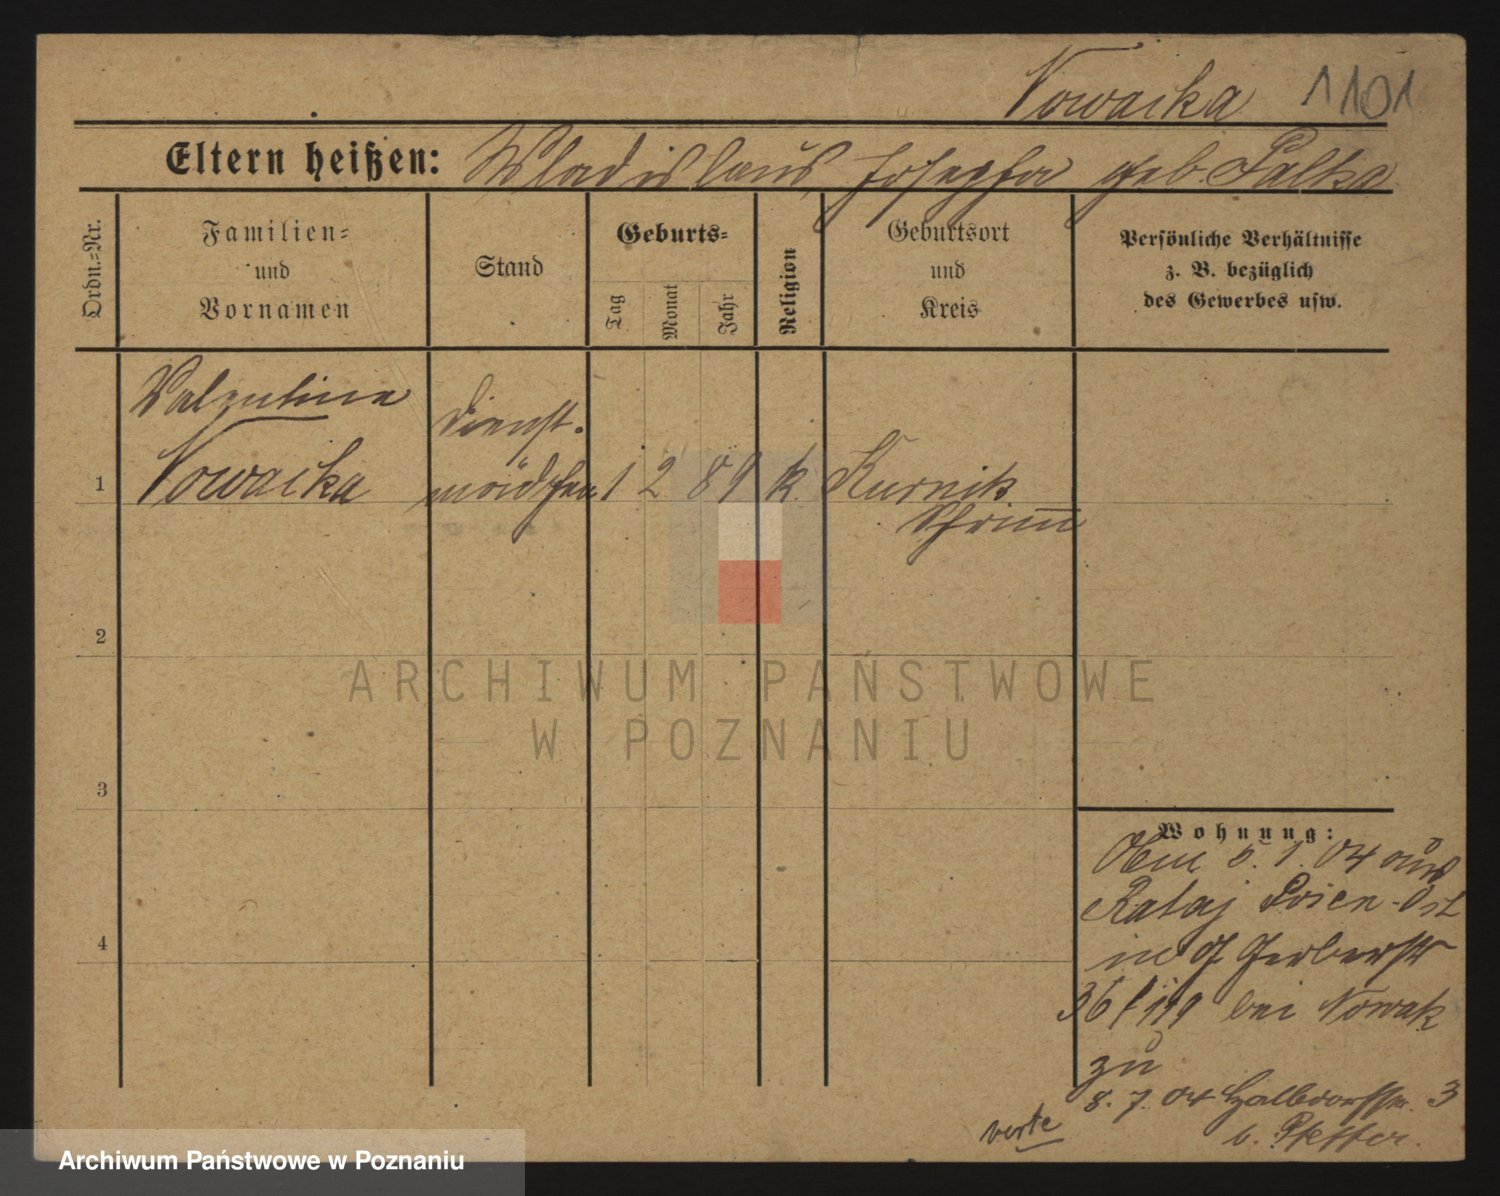 Nowacka 1101
Eltern heißen: Wladislaus, Josepha geb. Palka
Ordn.-Nr.
Familien-
und
Vornamen
Stand
Geburts-
Tag
Monat
Jahr
Religion
Geburtsort
und
Kreis
Persönliche Verhältnisse
z. B. bezüglich
des Gewerbes usw.
Valentine
Dienst-
1 Nowacka mädchen 1 2 89 k Kurnik
Schrimm
2
3
4
Wohnung:
1. 04 aus
Rataj Posen-Ost
Gerberstr
36 bei Nowak
zu
8. 7. 04 Halbdorfstr. 3
b. Pfeffer.
verte
ARCHIWUM PAŃSTWOWE
W POZNANIU
Archiwum Państwowe w Poznaniu